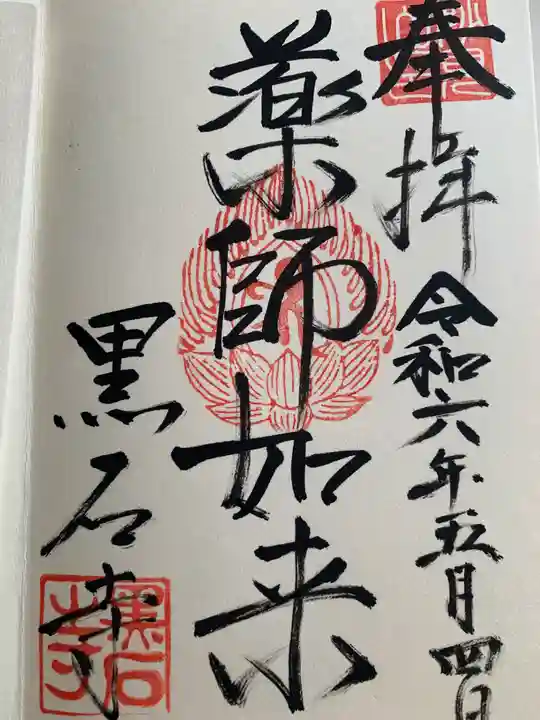 奉拝
令和六年五月四日
薬師如来
黒石寺
黒石寺